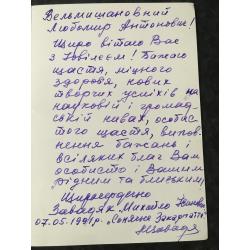 Вельмишановний
Любомир Антонович!
Щиро вітаю Вас
з Ювілеєм! Бажаю
щастя, міцного
здоровя, нових
творчих успіхів на
науковій і громад-
ській нивах, особис-
того щастя, випов-
нення бажань і
всіляких благ Вам
особисто і Вашим
рідним та близьким.
Щиросердечно
Завадяк Михайло
07.05.1991р. "Соняшне Закарпаття"